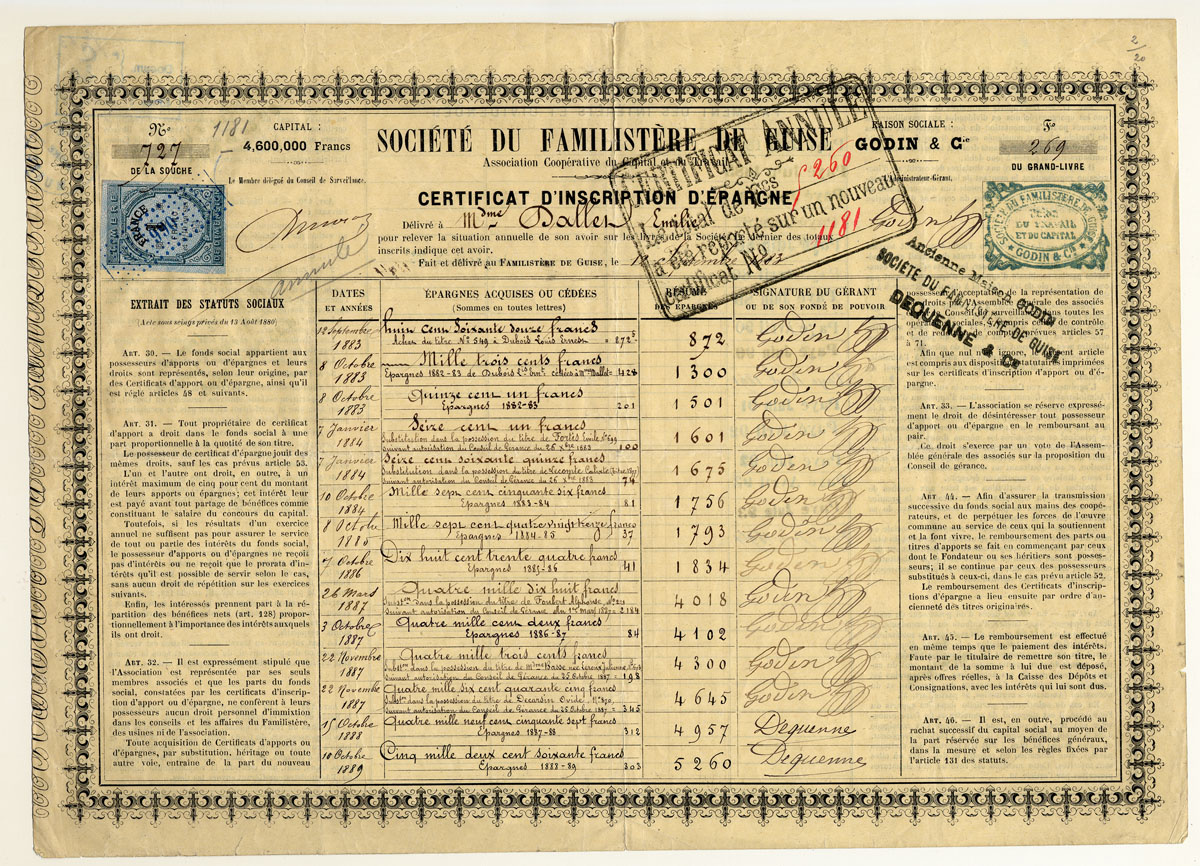 2/20
Nº
727
DE LA SOUCHE
1181
CAPITAL :
4,600,000 Francs
Le Membre délégué du Conseil de Surveillance.
SOCIÉTÉ DU FAMILISTÈRE DE GUISE
Association Coopérative du Capital et du Travail
CERTIFICAT D'INSCRIPTION D'ÉPARGNE
RAISON SOCIALE :
GODIN & Cie
L'Administrateur-Gérant,
Fº
269
DU GRAND-LIVRE
FRANCE
annulé
Godin
Délivré à Mdme Dallet Emilie
pour relever la situation annuelle de son avoir sur les livres de la Société. Le dernier des totaux
inscrits indique cet avoir.
Fait et délivré au FAMILISTÈRE DE GUISE, le
CERTIFICAT ANNULÉ
Le total de ces 5260
a été reporté sur un nouveau
certificat Nº 1181
SOCIÉTÉ DU FAMILISTÈRE DE GUISE
UNION
DU TRAVAIL
ET DU CAPITAL
GODIN & Cie
Ancienne Maison GODIN
SOCIÉTÉ DU FAMILISTÈRE DE GUISE
DEQUENNE & Cie
EXTRAIT DES STATUTS SOCIAUX
(Acte sous seings privés du 13 Août 1880)
ART. 30. — Le fonds social appartient aux
possesseurs d'apports ou d'épargnes et leurs
droits sont représentés, selon leur origine, par
des Certificats d'apport ou d'épargne, ainsi qu'il
est réglé articles 48 et suivants.
ART. 31. — Tout propriétaire de certificat
d'apport a droit dans le fonds social à une
part proportionnelle à la quotité de son titre.
Le possesseur de certificat d'épargne jouit des
mêmes droits, sauf les cas prévus article 53.
L'un et l'autre ont droit, en outre, à un
intérêt maximum de cinq pour cent du montant
de leurs apports ou épargnes; cet intérêt leur
est payé avant tout partage de bénéfices comme
constituant le salaire du concours du capital.
Toutefois, si les résultats d'un exercice
annuel ne suffisent pas pour assurer le service
de tout ou partie des intérêts du fonds social,
le possesseur d'apports ou d'épargnes ne reçoit
pas d'intérêts ou ne reçoit que le prorata d'in-
térêts qu'il est possible de servir selon le cas,
sans aucun droit de répétition sur les exercices
suivants.
Enfin, les intéressés prennent part à la ré-
partition des bénéfices nets (art. 128) propor-
tionnellement à l'importance des intérêts auxquels
ils ont droit.
ART. 32. — Il est expressément stipulé que
l'Association est représentée par ses seuls
membres associés et que les parts du fonds
social, constatées par les certificats d'inscrip-
tion d'apport ou d'épargne, ne confèrent à leurs
possesseurs aucun droit personnel d'immixtion
dans les conseils et les affaires du Familistère,
des usines ni de l'association.
Toute acquisition de Certificats d'apports ou
d'épargnes, par substitution, héritage ou toute
autre voie, entraine de la part du nouveau
DATES
ET ANNÉES
ÉPARGNES ACQUISES OU CÉDÉES
(Sommes en toutes lettres)
RÉSUMÉ
DES ÉPARGNES
SIGNATURE DU GÉRANT
OU DE SON FONDÉ DE POUVOIR
12 Septembre 1883 huit cent Soixante douze francs
Achat du titre Nº 549 a Dubois Louis Ernest = 872 872 Godin
8 Octobre 1883 Mille trois cents francs
Epargnes 1882-83 de Dubois Ls Ernt cédées à Mme Dallet = 428 1300 Godin
8 Octobre 1883 Quinze cent un francs
Epargnes 1882-83 201 1501 Godin
7 Janvier 1884 Seize cent un francs
Substitution dans la possession du titre de Fortes Emile Nº 699
suivant autorisation du Conseil de Gérance du 26 Xbre 1883 100 1601 Godin
7 Janvier 1884 Seize cent soixante quinze francs
Substitution dans la possession du titre de Lecomte
suivant autorisation du Conseil de Gérance du 26 Xbre 1883 74 1675 Godin
10 Octobre 1884 Mille sept cent cinquante six francs
Epargnes 1883-84 81 1756 Godin
8 Octobre 1885 Mille sept cent quatre vingt treize francs
Epargnes 1884-85 37 1793 Godin
7 Octobre 1886 Dix huit cent trente quatre francs
Epargnes 1885-86 41 1834 Godin
26 Mars 1887 Quatre mille dix huit francs
Subston dans la possession du titre de Foubert Alphonse
suivant autorisation du Conseil de Gérance du 1er mars 1887 = 2184 4018 Godin
3 Octobre 1887 Quatre mille cent deux francs
Epargnes 1886-87 84 4102 Godin
22 Novembre 1887 Quatre mille trois cents francs
Subston dans la possession du titre de Mme Basse née Leroux Julienne
suivant autorisation du Conseil de Gérance du 25 octobre 1887 = 198 4300 Godin
22 Novembre 1887 Quatre mille six cent quarante cinq francs
Subston dans la possession du titre de Decarsin Ovide, Nº 870,
suivant autorisation du Conseil de Gérance du 25 Octobre 1887 = 345 4645 Godin
15 Octobre 1888 Quatre mille neuf cent cinquante sept francs
Epargnes 1887-88 312 4957 Dequenne
10 Octobre 1889 Cinq mille deux cent soixante francs
Epargnes 1888-89 303 5260 Dequenne
possesseur, d'acceptation de la représentation de
ses droits par l'Assemblée générale des associés
et le Conseil de surveillance dans toutes les
opérations sociales, y compris celles de contrôle
et de reddition de comptes prévues articles 57
à 71.
Afin que nul n'en ignore, le présent article
est compris aux dispositions statutaires imprimées
sur les certificats d'inscription d'apport ou d'é-
pargne.
ART. 33. — L'association se réserve expressé-
ment le droit de désintéresser tout possesseur
d'apport ou d'épargne en le remboursant au
pair.
Ce droit s'exerce par un vote de l'Assem-
blée générale des associés sur la proposition du
Conseil de gérance.
ART. 44. — Afin d'assurer la transmission
successive du fonds social aux mains des coopé-
rateurs, et de perpétuer les forces de l'œuvre
commune au service de ceux qui la soutiennent
et la font vivre, le remboursement des parts ou
titres d'apports se fait en commençant par ceux
dont le Fondateur ou ses héritiers sont posses-
seurs; il se continue par ceux des possesseurs
substitués à ceux-ci, dans le cas prévu article 52.
Le remboursement des Certificats d'inscrip-
tions d'épargne a lieu ensuite par ordre d'an-
cienneté des titres originaires.
ART. 45. — Le remboursement est effectué
en même temps que le paiement des intérêts.
Faute par le titulaire de remettre son titre, le
montant de la somme à lui due est déposé,
après offres réelles, à la Caisse des Dépôts et
Consignations, avec les intérêts qui lui sont dus.
ART. 46. — Il est, en outre, procédé au
rachat successif du capital social au moyen de
la part réservée sur les bénéfices généraux,
dans la mesure et selon les règles fixées par
l'article 131 des statuts.